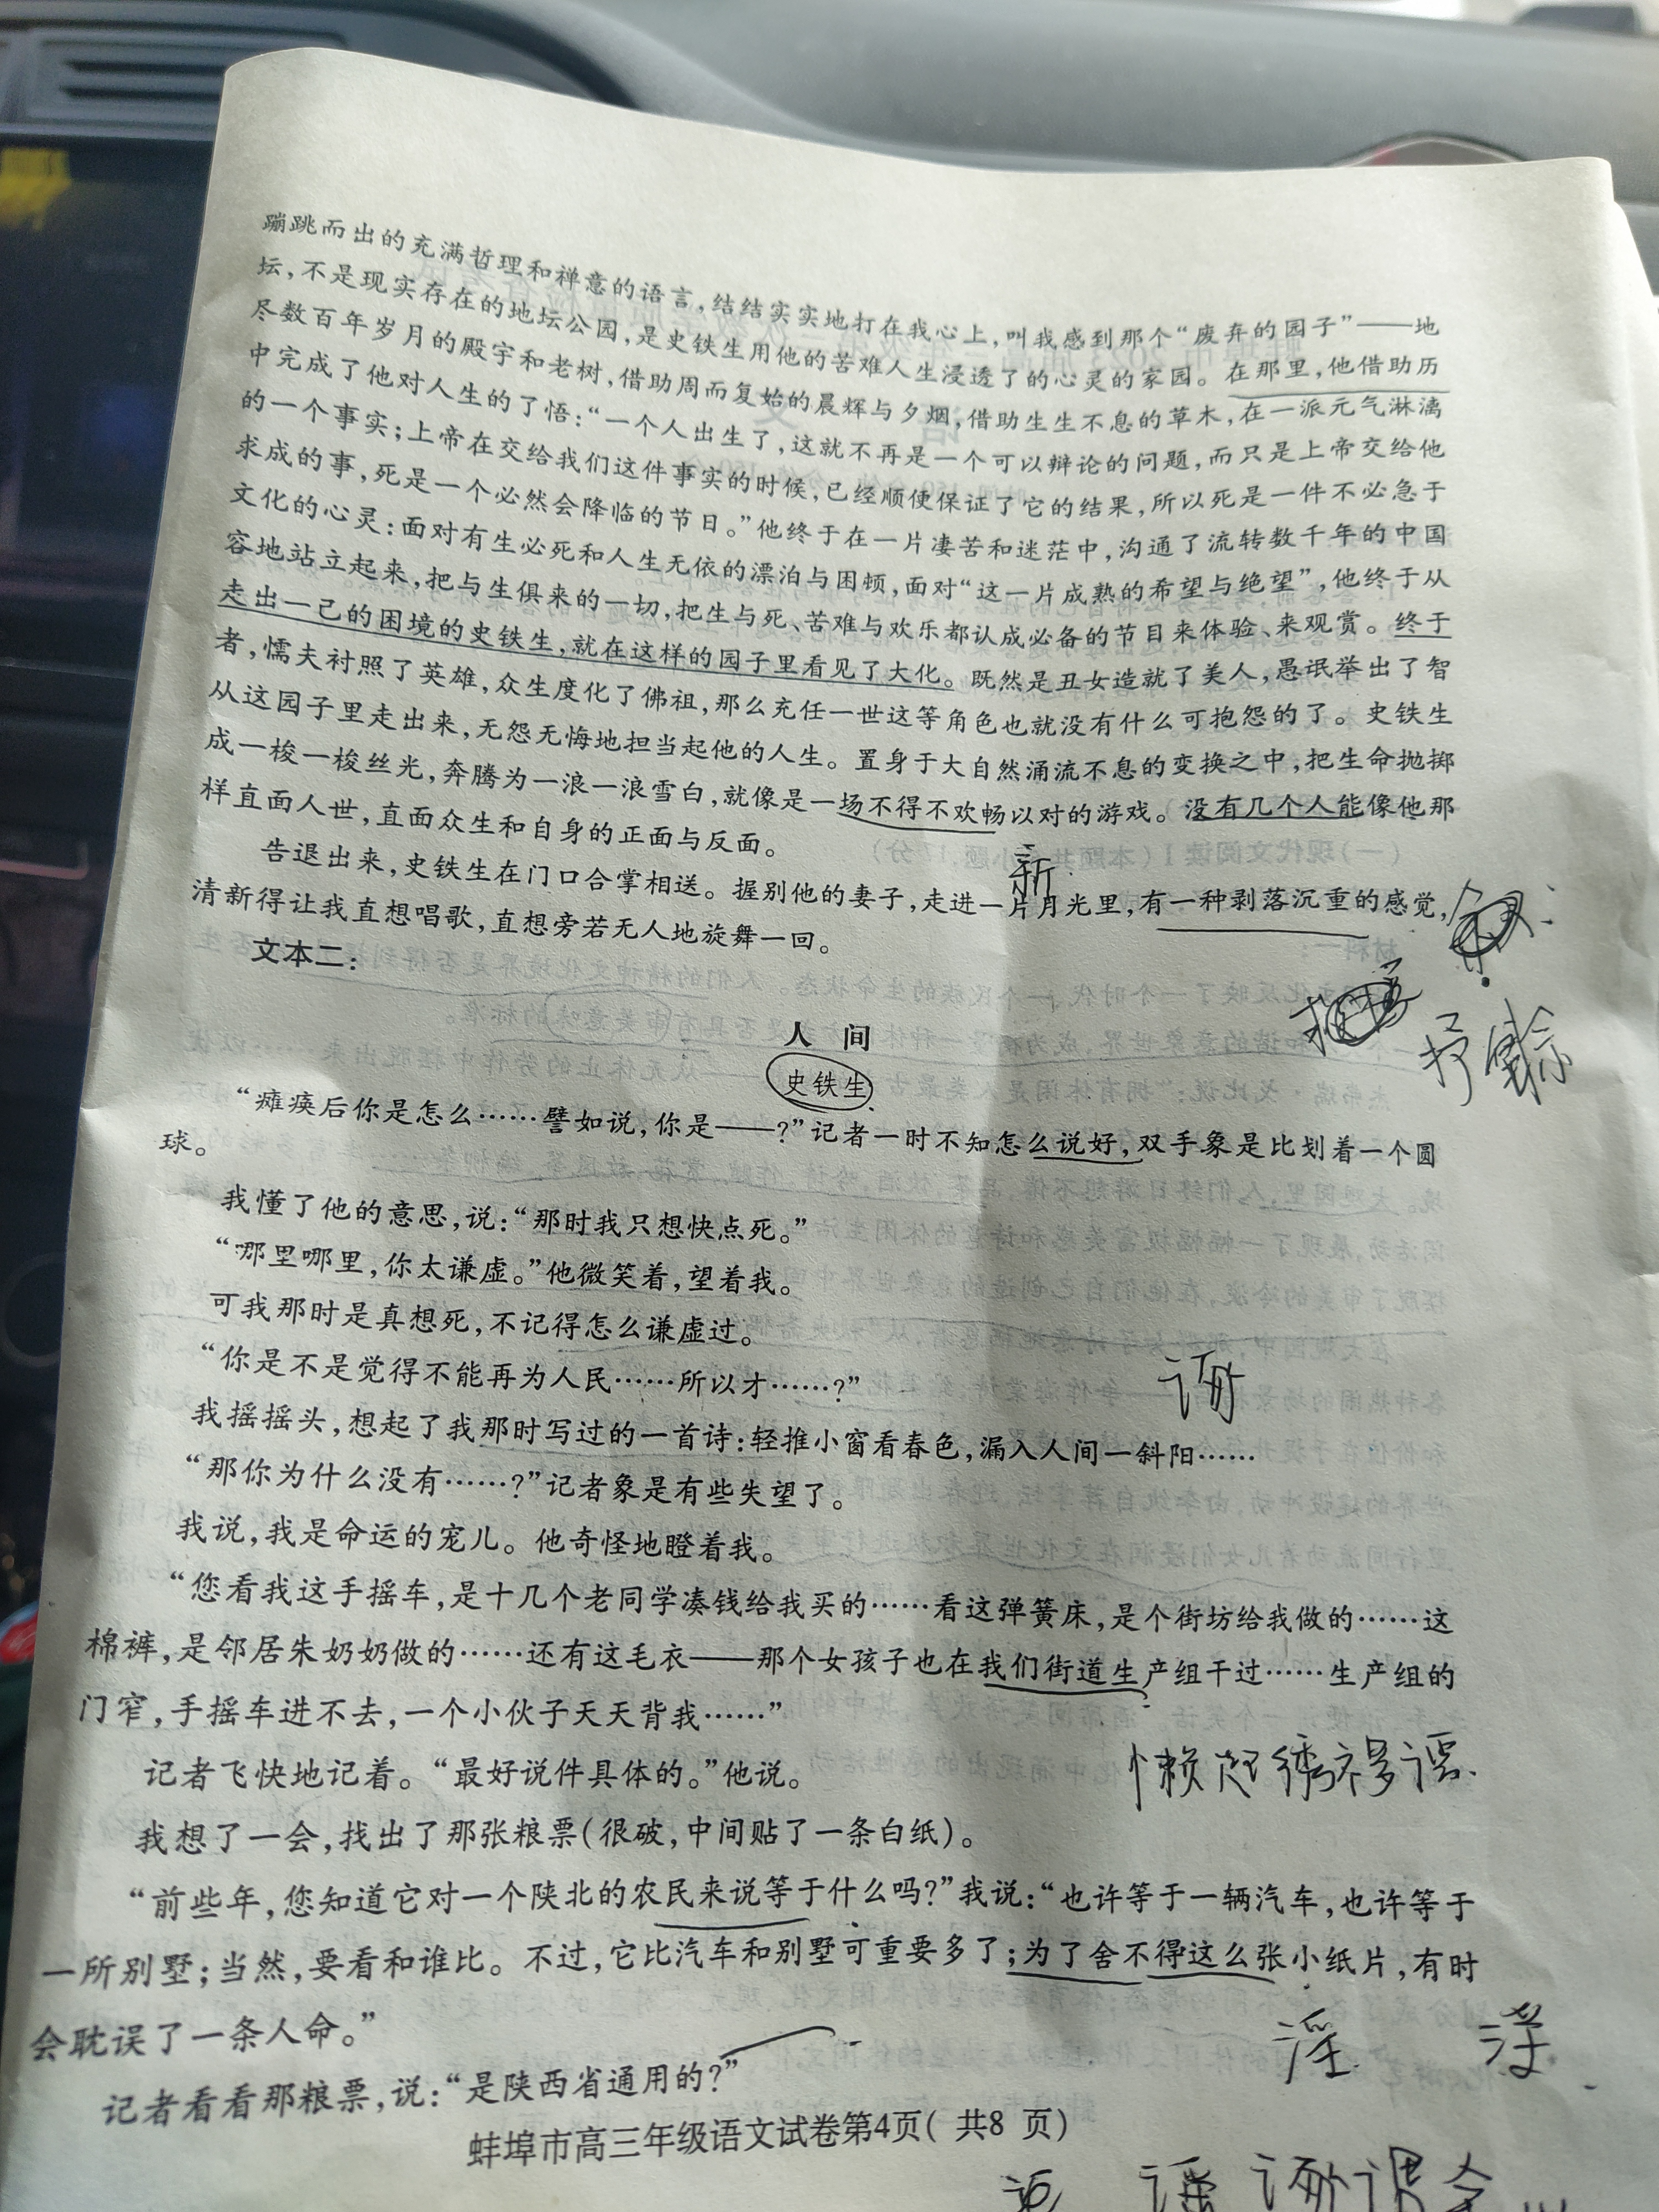 蹦跳而出的充满哲理和禅意的语言，结结实实地打在我心上，叫我感到那个“废弃的园子”——地
坛，不是现实存在的地坛公园，是史铁生用他的苦难人生浸透了的心灵的家园。在那里，他借助历
尽数百年岁月的殿宇和老树，借助周而复始的晨辉与夕烟，借助生生不息的草木，在一派元气淋漓
中完成了他对人生的了悟：“一个人出生了，这就不再是一个可以辩论的问题，而只是上帝交给他
的一个事实；上帝在交给我们这件事实的时候，已经顺便保证了它的结果，所以死是一件不必急于
求成的事，死是一个必然会降临的节日。”他终于在一片凄苦和迷茫中，沟通了流转数千年的中国
文化的心灵：面对有生必死和人生无依的漂泊与困顿，面对“这一片成熟的希望与绝望”，他终于从
容地站立起来，把与生俱来的一切，把生与死、苦难与欢乐都认成必备的节目来体验、来观赏。终于
走出一己的困境的史铁生，就在这样的园子里看见了大化。既然是丑女造就了美人，愚氓举出了智
者，懦夫衬照了英雄，众生度化了佛祖，那么充任一世这等角色也就没有什么可抱怨的了。史铁生
从这园子里走出来，无怨无悔地担当起他的人生。置身于大自然涌流不息的变换之中，把生命抛掷
成一梭一梭丝光，奔腾为一浪一浪雪白，就像是一场不得不欢畅以对的游戏。没有几个人能像他那
样直面人世，直面众生和自身的正面与反面。
新
告退出来，史铁生在门口合掌相送。握别他的妻子，走进一片月光里，有一种剥落沉重的感觉，
清新得让我直想唱歌，直想旁若无人地旋舞一回。
文本二：
人 间
史铁生
“瘫痪后你是怎么……譬如说，你是——？”记者一时不知怎么说好，双手象是比划着一个圆
球。
我懂了他的意思，说：“那时我只想快点死。”
“那里哪里，你太谦虚。”他微笑着，望着我。
可我那时是真想死，不记得怎么谦虚过。
“你是不是觉得不能再为人民……所以才……？”
我摇摇头，想起了我那时写过的一首诗：轻推小窗看春色，漏入人间一斜阳……
“那你为什么没有……？”记者象是有些失望了。
我说，我是命运的宠儿。他奇怪地瞪着我。
“您看我这手摇车，是十几个老同学凑钱给我买的……看这弹簧床，是个街坊给我做的……这
棉裤，是邻居朱奶奶做的……还有这毛衣——那个女孩子也在我们街道生产组干过……生产组的
门窄，手摇车进不去，一个小伙子天天背我……”
记者飞快地记着。“最好说件具体的。”他说。
我想了一会，找出了那张粮票（很破，中间贴了一条白纸）。
“前些年，您知道它对一个陕北的农民来说等于什么吗？”我说：“也许等于一辆汽车，也许等于
一所别墅；当然，要看和谁比。不过，它比汽车和别墅可重要多了；为了舍不得这么张小纸片，有时
会耽误了一条人命。”
淫
记者看看那粮票，说：“是陕西省通用的？”
蚌埠市高三年级语文试卷第4页( 共8 页)